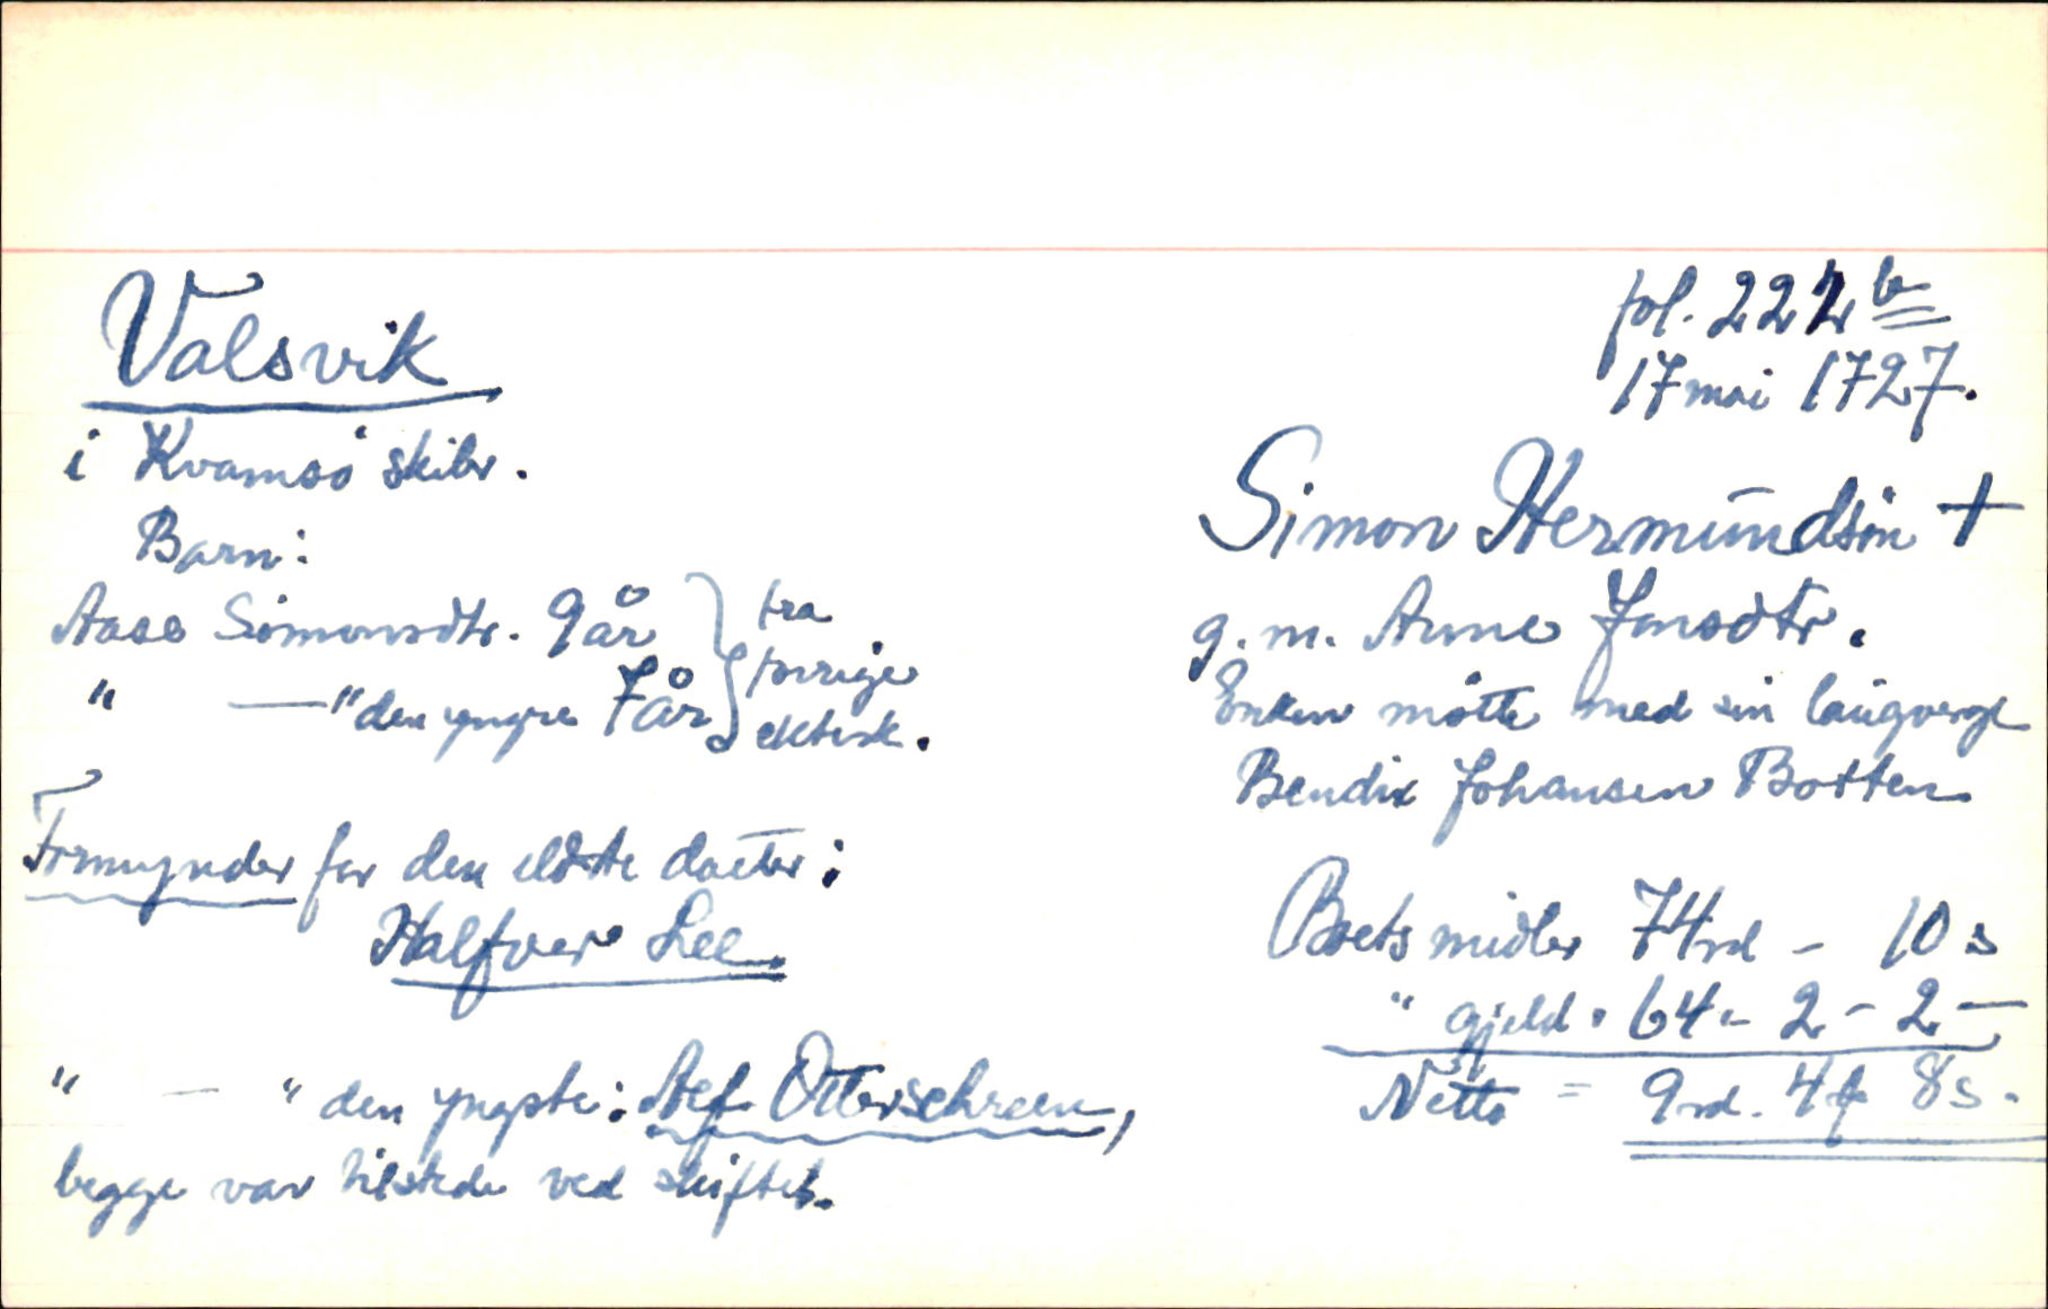 Valsvik
i Kvamsö skibr.
Barn:
Aase Simonsdtr. 9 år } fra
" — " den yngre 7 år } forrige
ektesk.
Formynder for den eldste dotter:
Halfver Lee.
" — " den yngste: Aef Otterschreen,
begge var tilstede ved skiftet.
fol. 222 b
17 mai 1727.
Simon Hermundsön +
g. m. Anne Jonsdtr.
Enken mötte med sin laugverge
Bendix Johansen Botten
Boets midler 74 rd - 10 s
" gjeld . 64 - 2 - 2 —
Netto = 9 rd. 4 8 s.